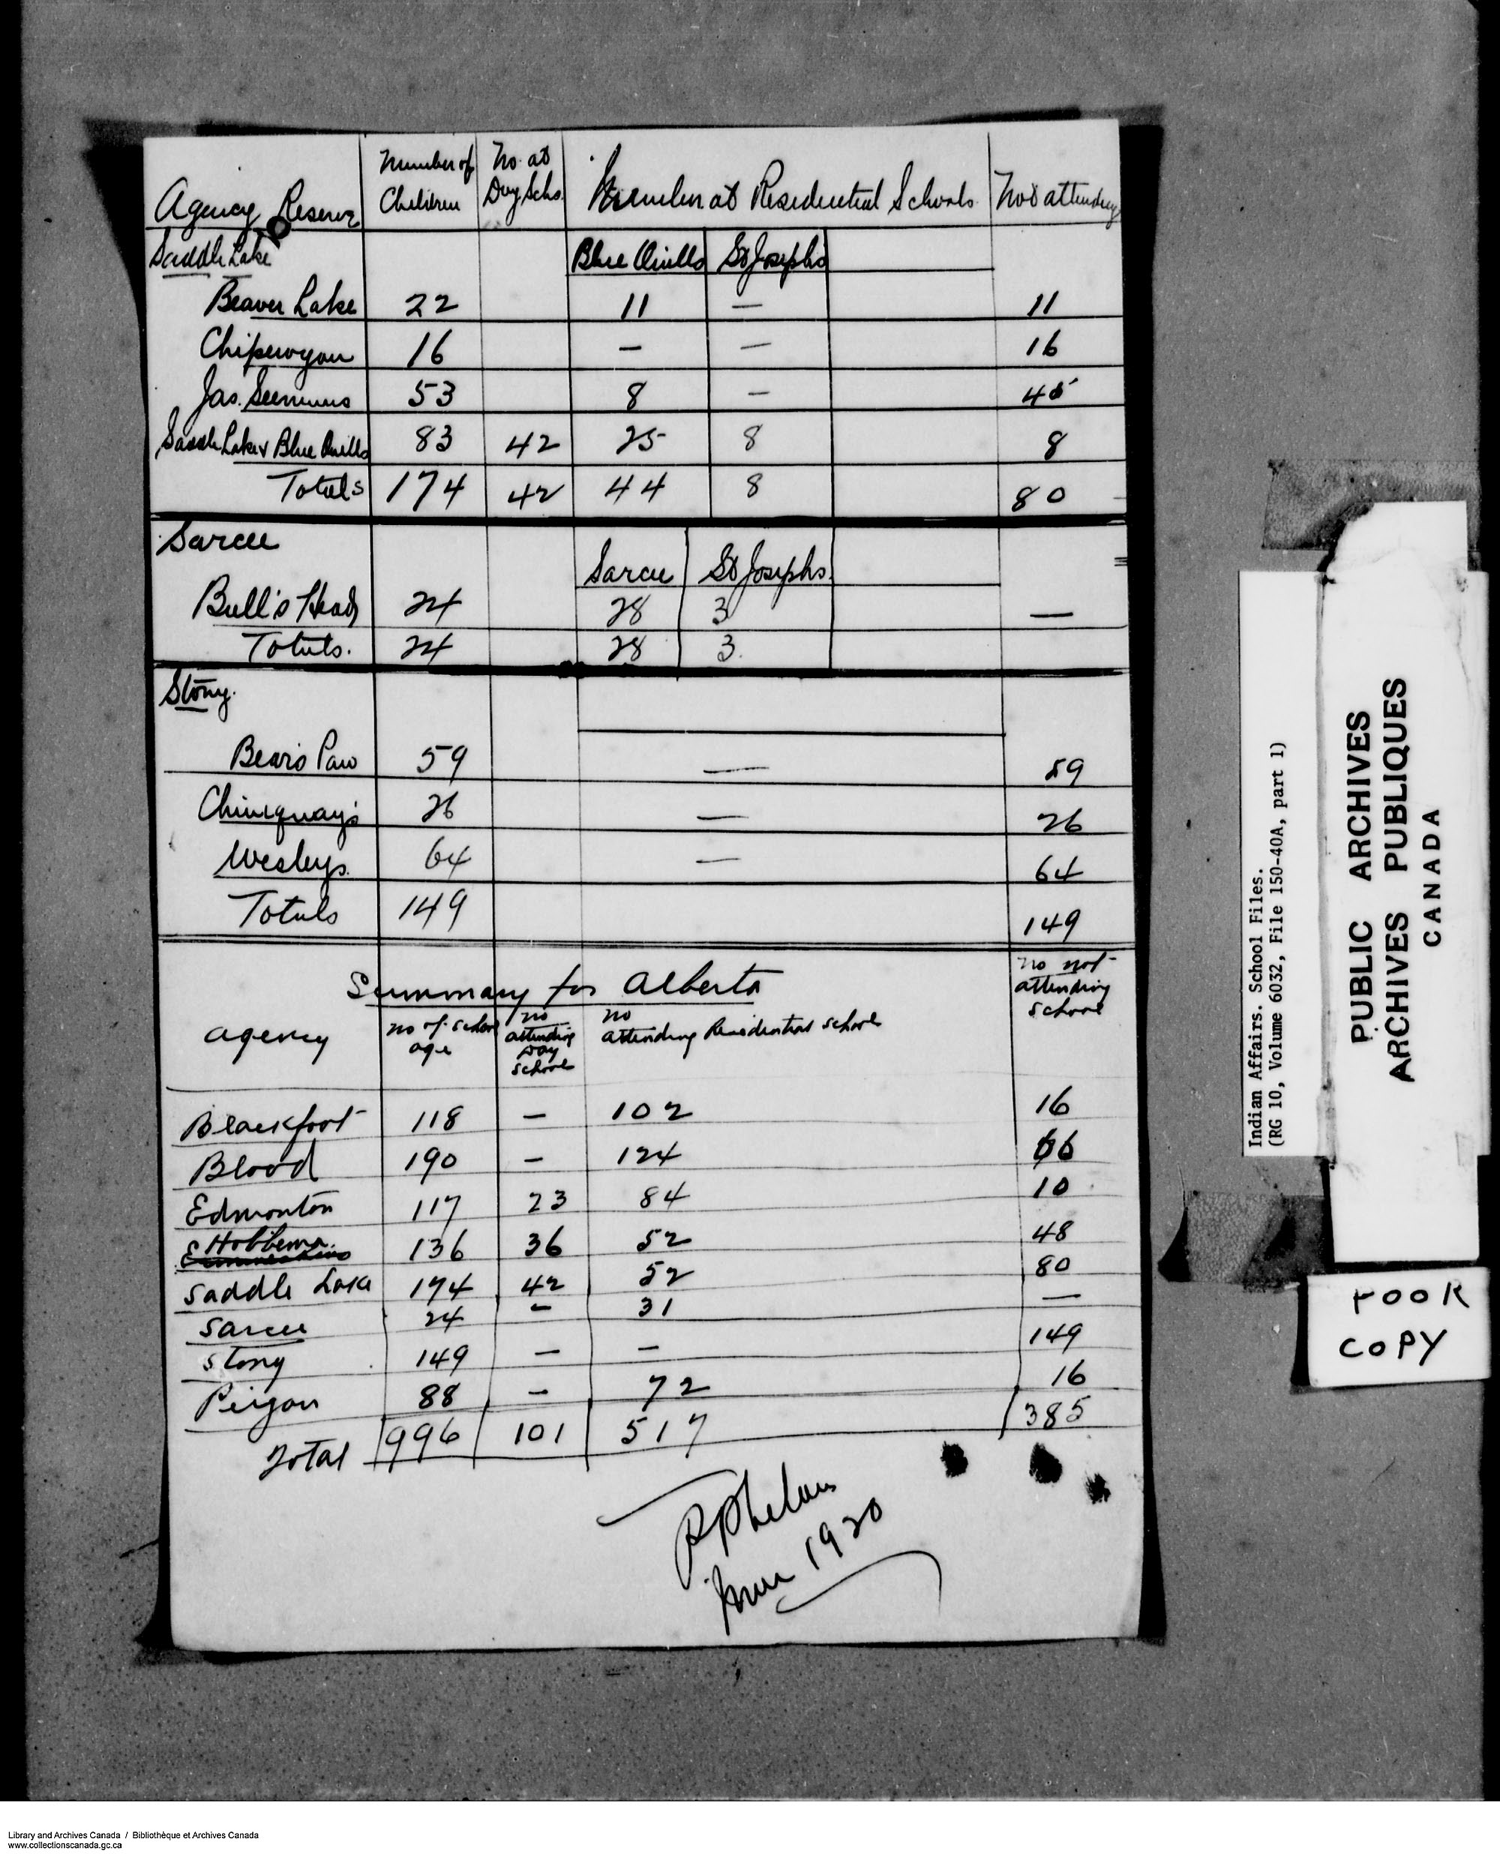 Agency Reserve Number of Children No. at Day Schs. Number at Residential Schools Not attending
Saddle Lake Blue Quills St Josephs
Beaver Lake 22 11 — 11
Chipewyan 16 — — 16
Jas. Seenums 53 8 — 45
Saddle Lake & Blue Quills 83 42 25 8 8
Totals 174 42 44 8 80
Sarcee Sarcee St Josephs.
Bull's Head 24 28 3 —
Totals. 24 28 3.
Stony.
Bear's Paw 59 — 59
Chiniquay's 26 — 26
Wesleys. 64 — 64
Totals 149 149
Summary for Alberta
agency no of school age no attending Day school no attending Residential school no not attending school
Blackfoot 118 — 102 16
Blood 190 — 124 66
Edmonton 117 23 84 10
Hobbema. 136 36 52 48
Saddle Lake 174 42 52 80
Sarcee 24 — 31 —
Stony 149 — — 149
Peigan 88 — 72 16
Total 996 101 517 385
P Phelan
June 1920
Indian Affairs. School Files.
(RG 10, Volume 6032, File 150-40A, part 1)
PUBLIC ARCHIVES
ARCHIVES PUBLIQUES
CANADA
POOR
COPY
Library and Archives Canada / Bibliothèque et Archives Canada
www.collectionscanada.gc.ca